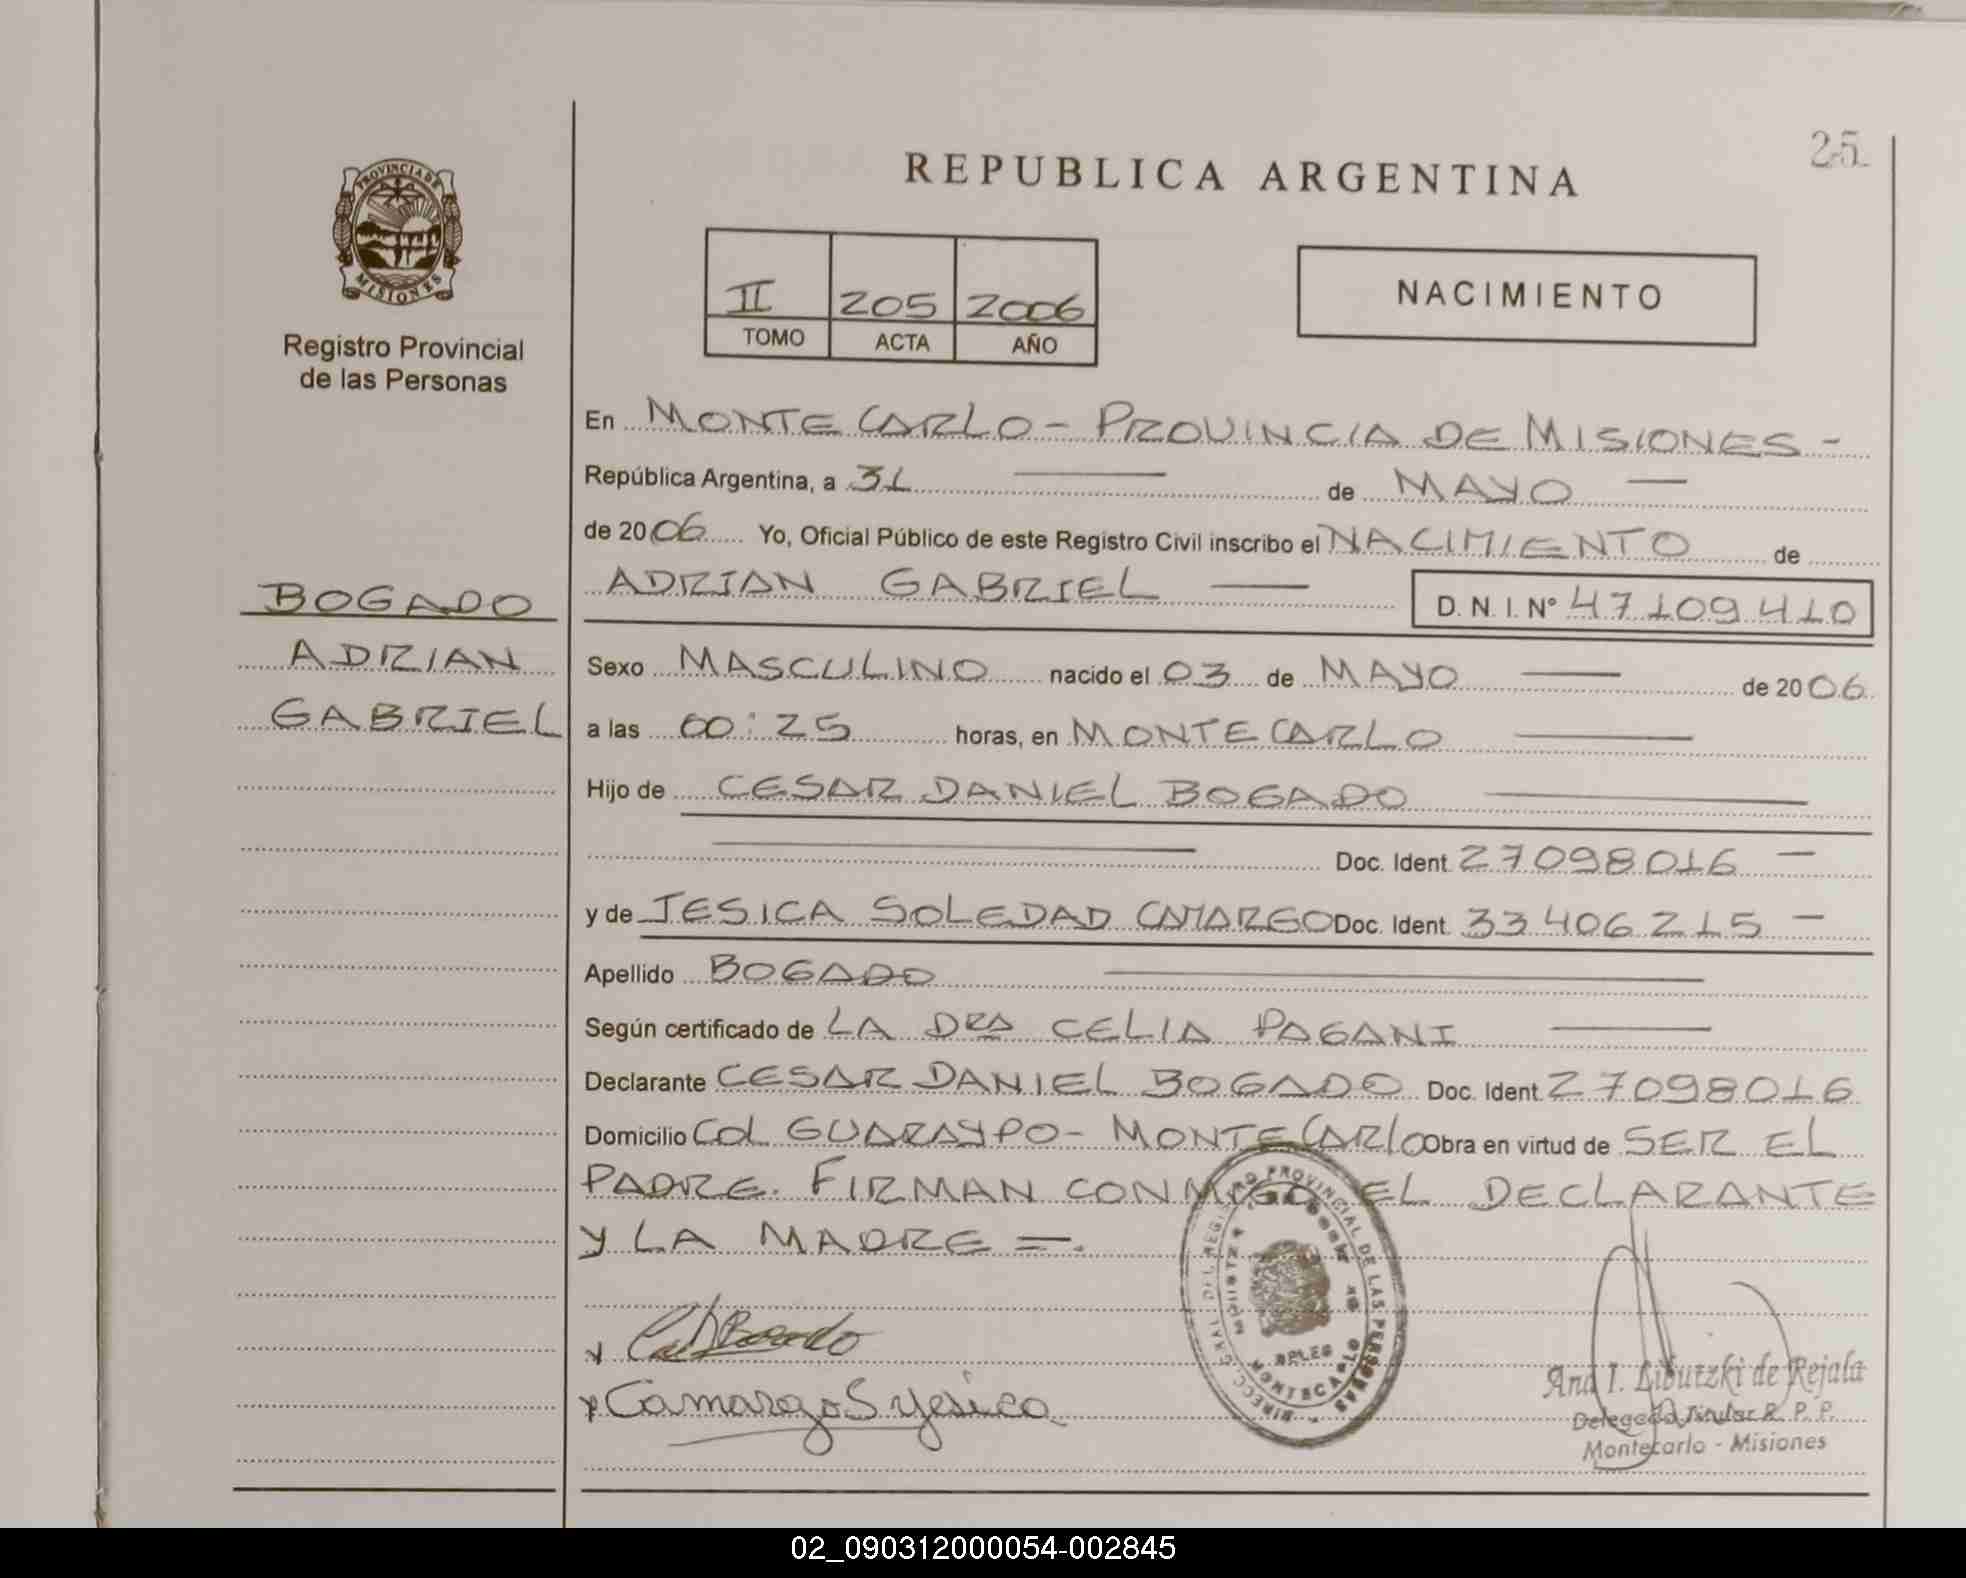 25
REPUBLICA ARGENTINA
PROVINCIA DE
MISIONES
Registro Provincial
de las Personas
II 205 2006
TOMO ACTA AÑO
NACIMIENTO
En MONTECARLO - PROVINCIA DE MISIONES -
República Argentina, a 31 de MAYO
de 2006 Yo, Oficial Público de este Registro Civil inscribo el NACIMIENTO de
ADRIAN GABRIEL D. N. I. Nº 47109410
BOGADO
ADRIAN
GABRIEL
Sexo MASCULINO nacido el 03 de MAYO de 2006
a las 00:25 horas, en MONTECARLO
Hijo de CESAR DANIEL BOGADO
Doc. Ident. 27098016 -
y de JESICA SOLEDAD CAMARGO Doc. Ident. 33406215 -
Apellido BOGADO
Según certificado de LA DRA CELIA PAGANI
Declarante CESAR DANIEL BOGADO Doc. Ident. 27098016
Domicilio COL GUARAYPO - MONTECARLO Obra en virtud de SER EL
PADRE. FIRMAN CONMIGO EL DECLARANTE
Y LA MADRE =.
DIRECC. GRAL DEL REGISTRO PROVINCIAL DE LAS PERSONAS
MONTECARLO
Camargo S Yesica
Ana I. Libutzki de Rejala
Delegada Titular R. P. P.
Montecarlo - Misiones
02_090312000054-002845